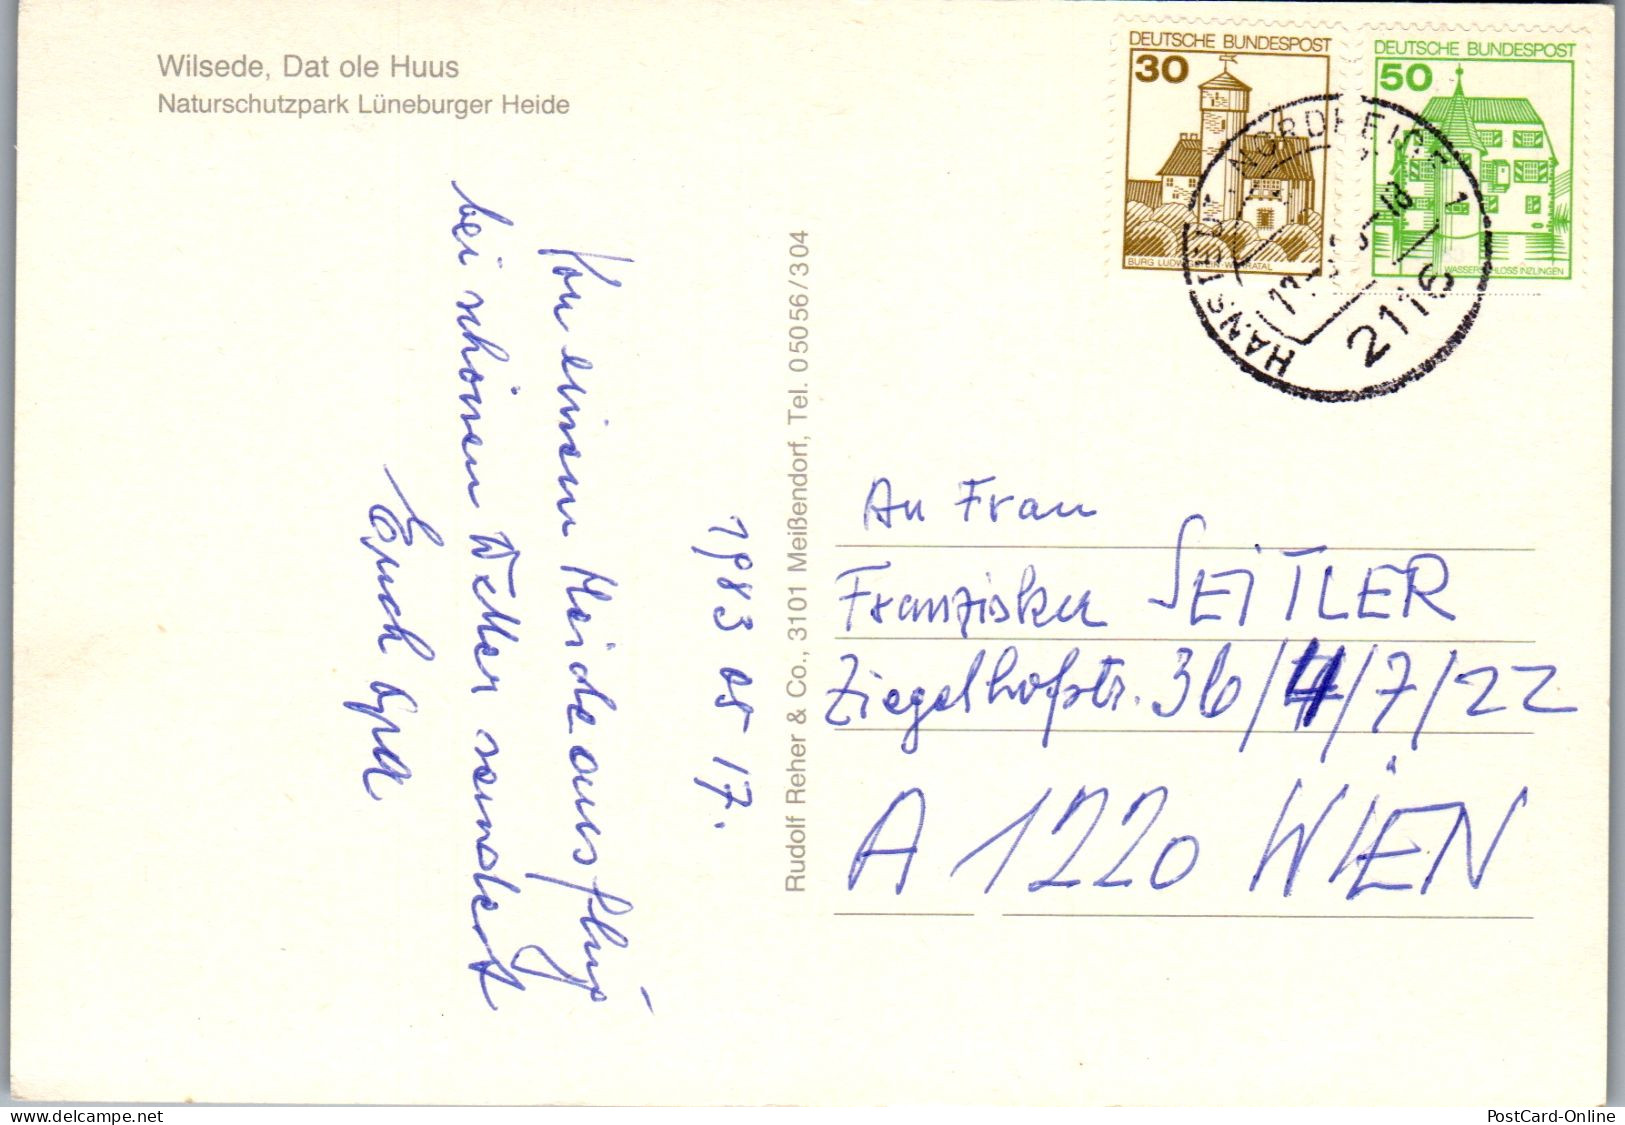 Wilsede, Dat ole Huus
Naturschutzpark Lüneburger Heide
1983 05 17.
Von einem Heideausflug
bei schönem Wetter sendet
Euch Opa
Rudolf Reher & Co., 3101 Meißendorf, Tel. 05056/304
DEUTSCHE BUNDESPOST
30
BURG LUDWIGSTEIN · WERRATAL
DEUTSCHE BUNDESPOST
50
WASSERSCHLOSS INZLINGEN
HANSTEDT, NORDHEIDE 1
2116
An Frau
Franziska SEITLER
Ziegelhofstr. 36/4/7/22
A 1220 WIEN
PostCard-Online
www.delcampe.net